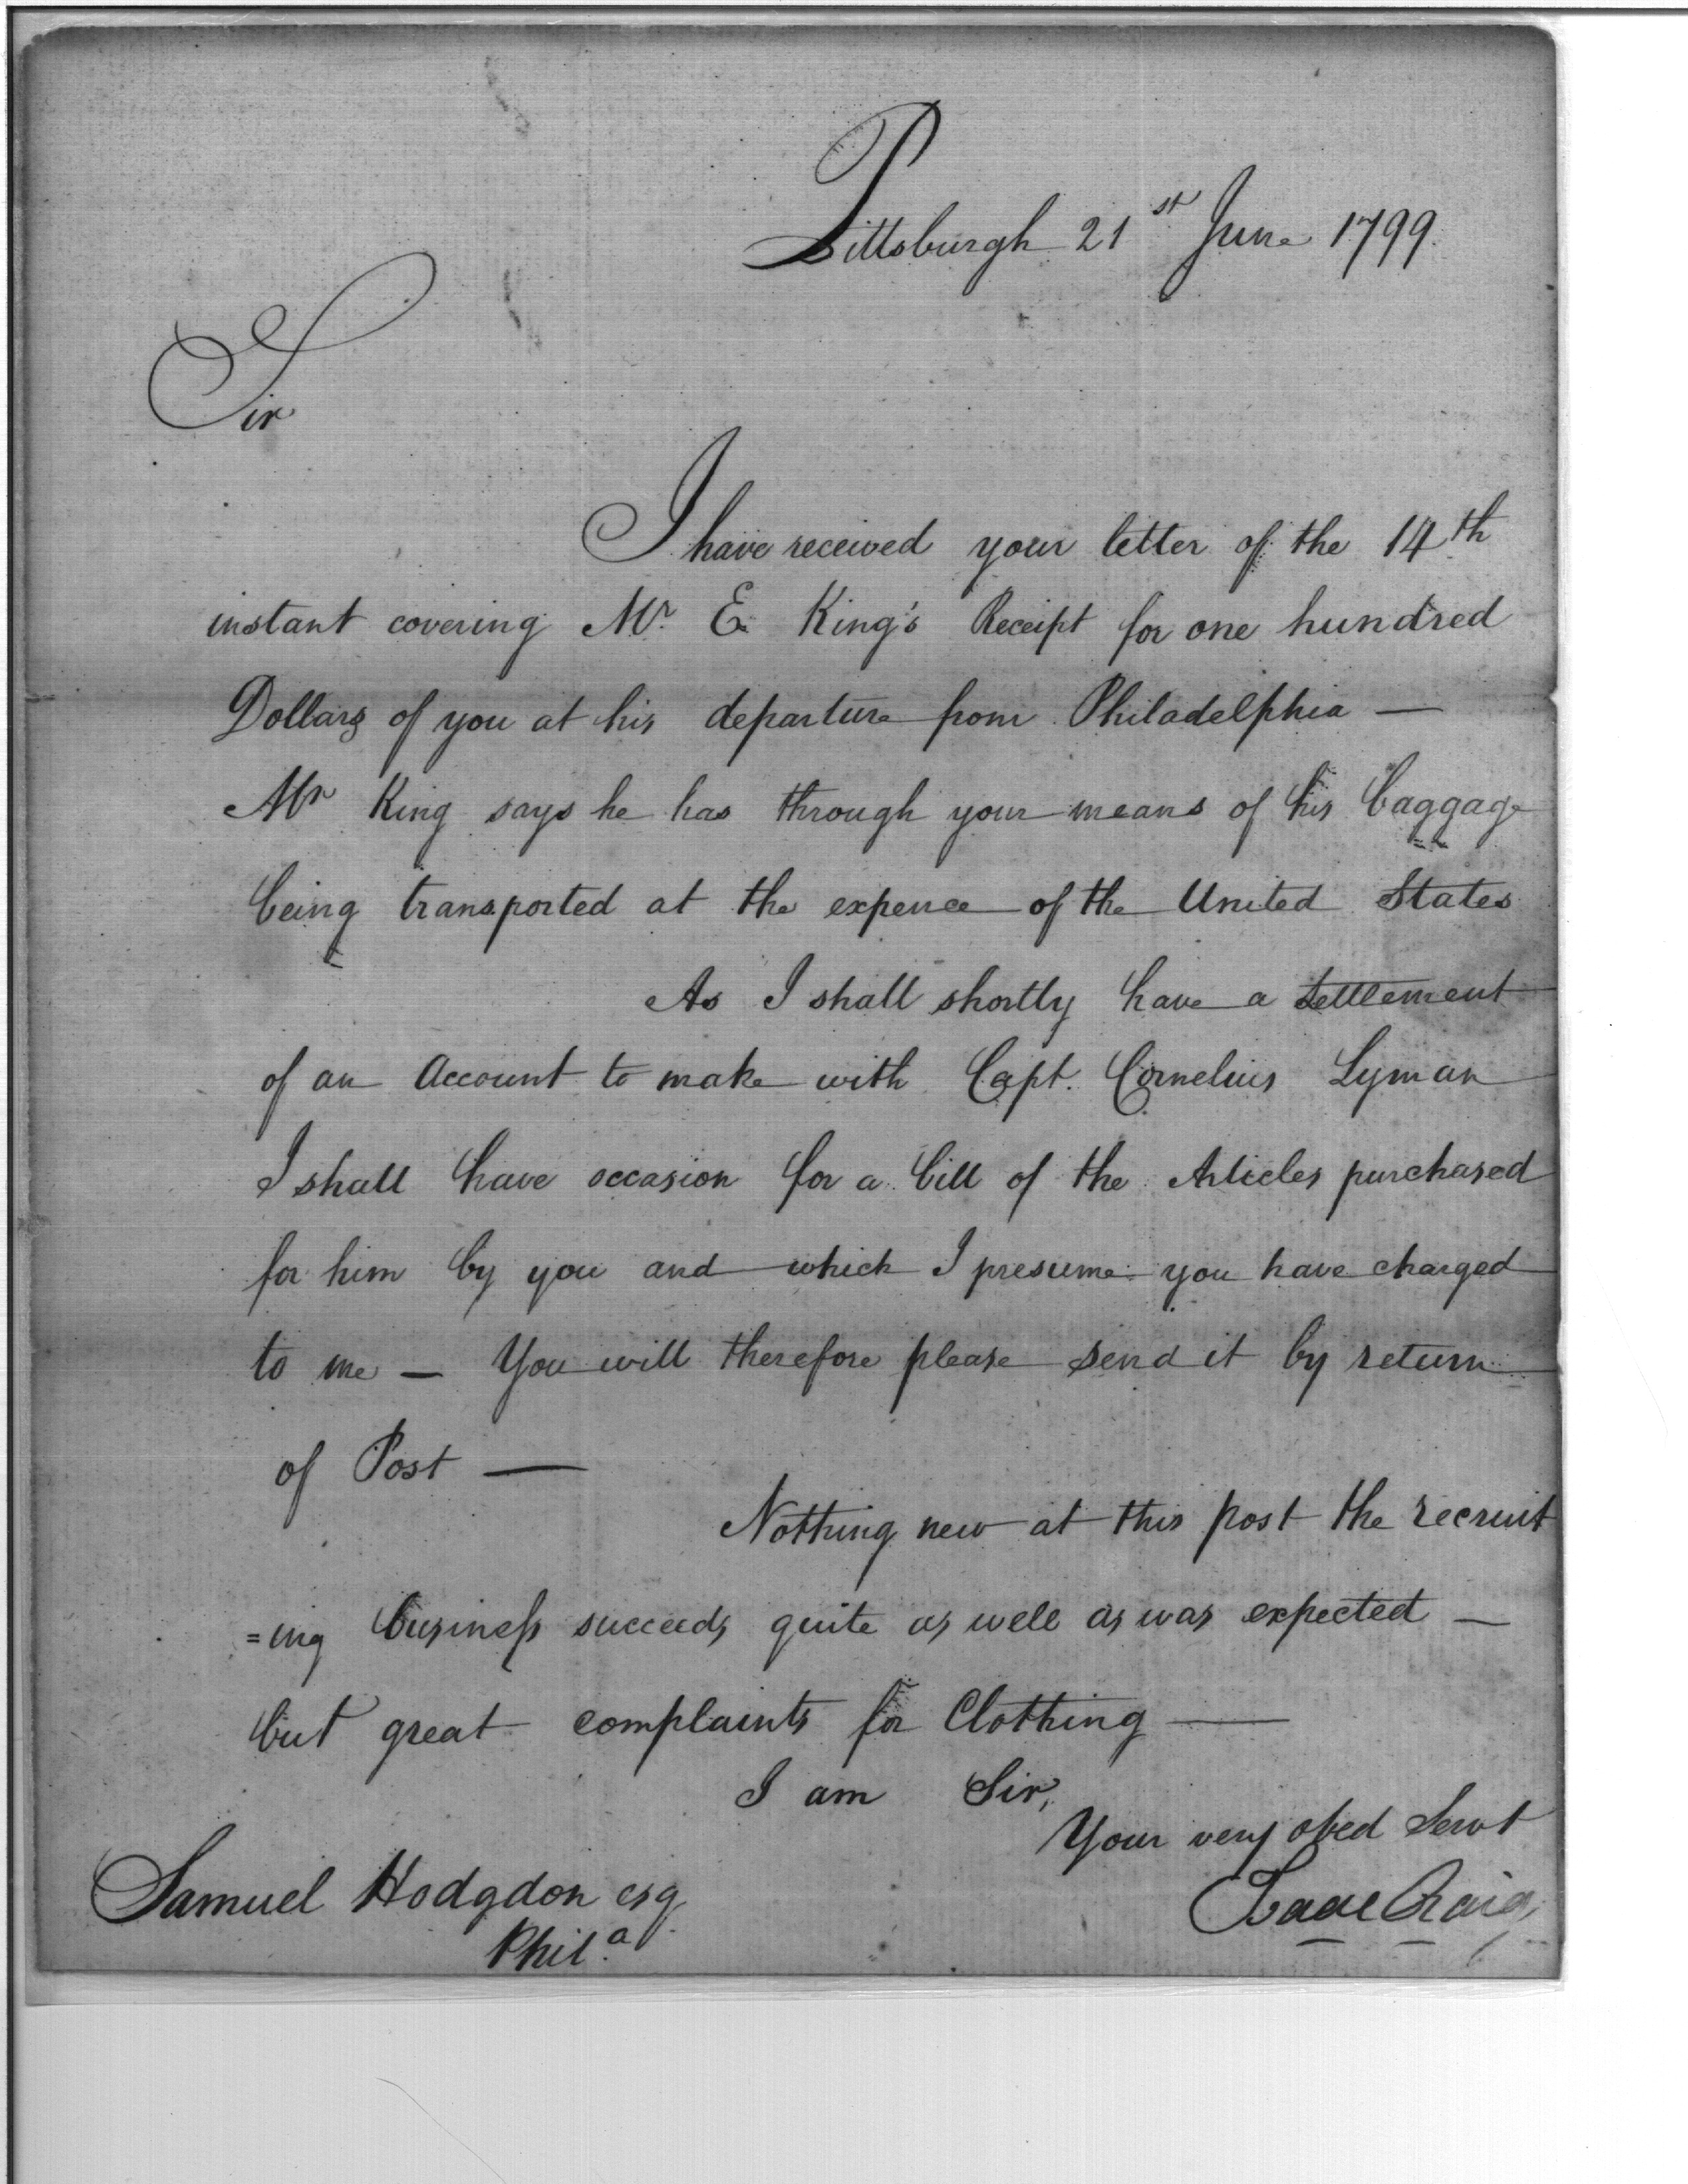 Pittsburgh 21st June 1799.
Sir
I have received your letter of the 14th
instant covering Mr. E. King's Receipt for one hundred
Dollars of you at his departure from Philadelphia —
Mr King says he has through your means of his baggage
being transported at the expence of the United States
As I shall shortly have a settlement
of an Account to make with Capt. Cornelius Lyman
I shall have occasion for a bill of the Articles purchased
for him by you and which I presume you have charged
to me — You will therefore please send it by return
of Post —
Nothing new at this post the recruit
=ing business succeeds quite as well as was expected —
but great complaints for Clothing —
I am Sir,
Your very obed Servt
Isaac Craig
Samuel Hodgdon esq
Phila.